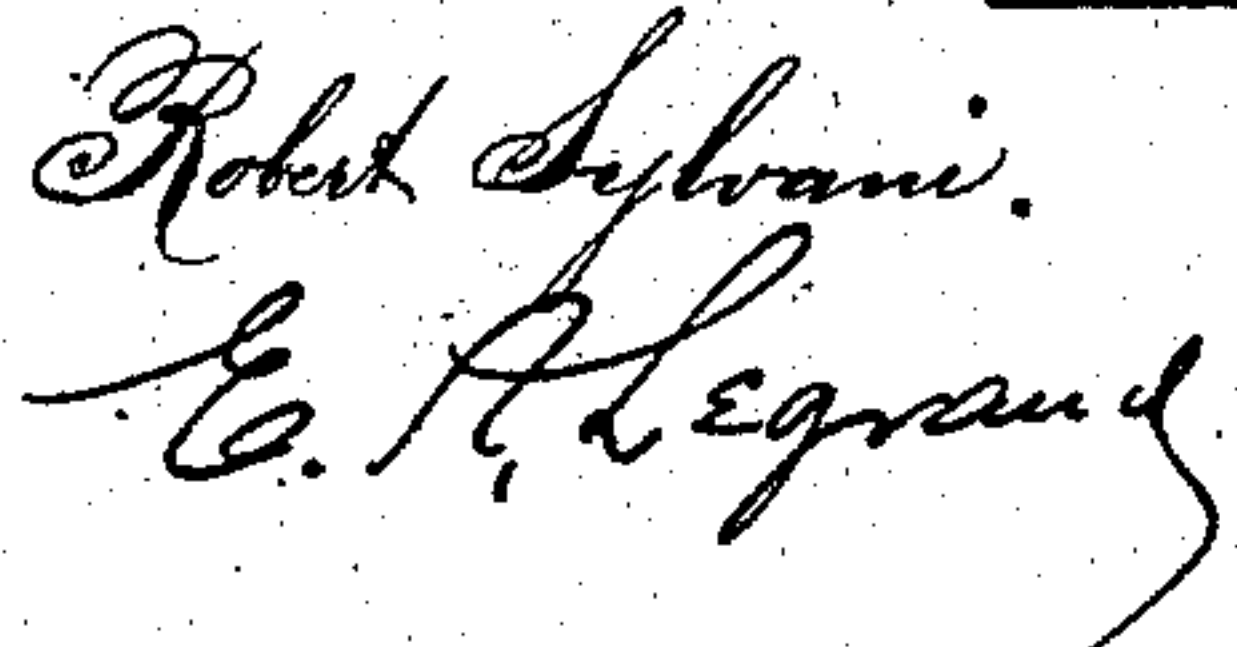 Robert Sylvani.
E. A. Legrand